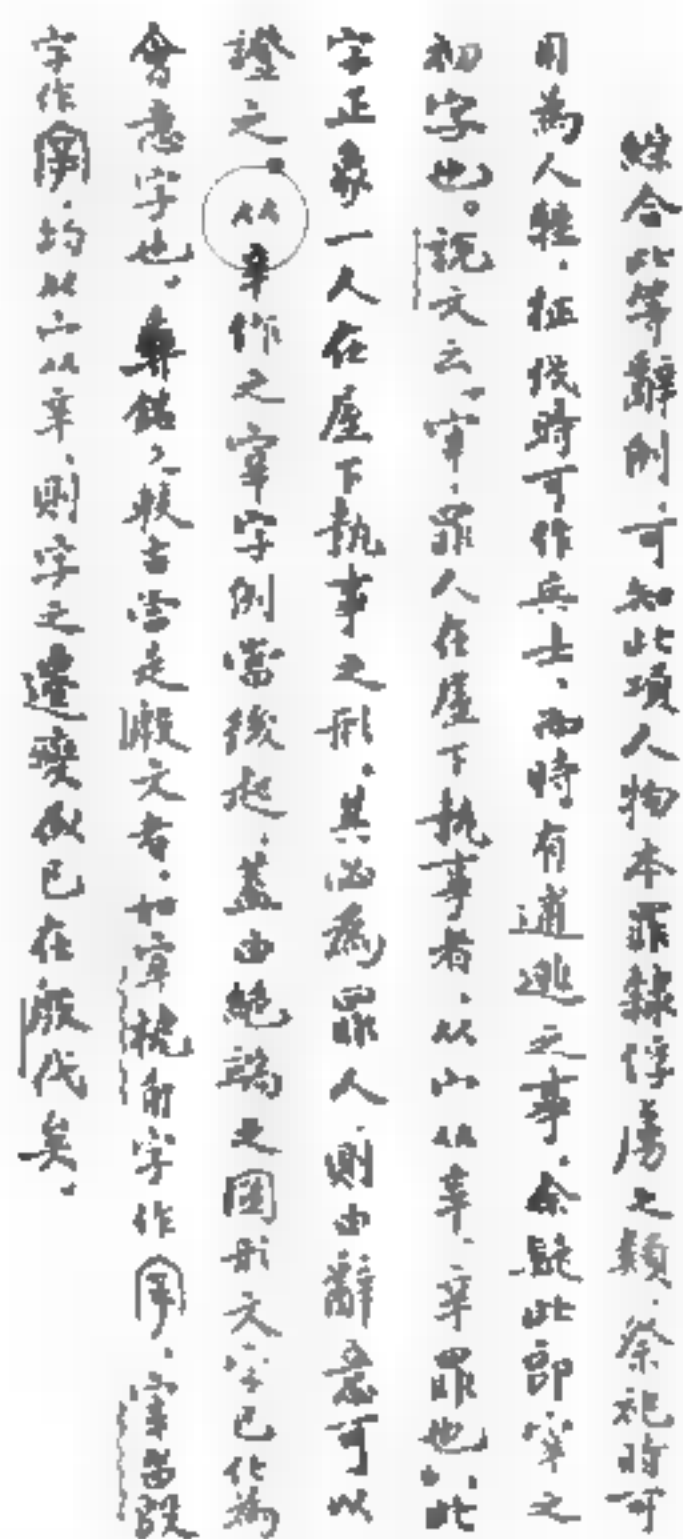 綜合此等辭例、可知此項人物本罪隸俘虜之類、祭祀時可
用為人牲、征伐時可作兵士、而時有逋逃之事、余疑此即宰之
初字也。說文云、宰、罪人在屋下執事者、从宀从辛、辛罪也、此
字正象一人在屋下執事之形。其必為罪人、則由辭意可以
證之、从辛作之宰字例當後起、蓋由純端之圖形文字已化為
會意字也。彝銘之較古當是殷文者、如宰椃角字作、宰甾𣪘
字作、均从宀从辛、則字之遭變似已在殷代矣。